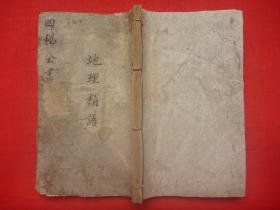 四秘全書
地理精語